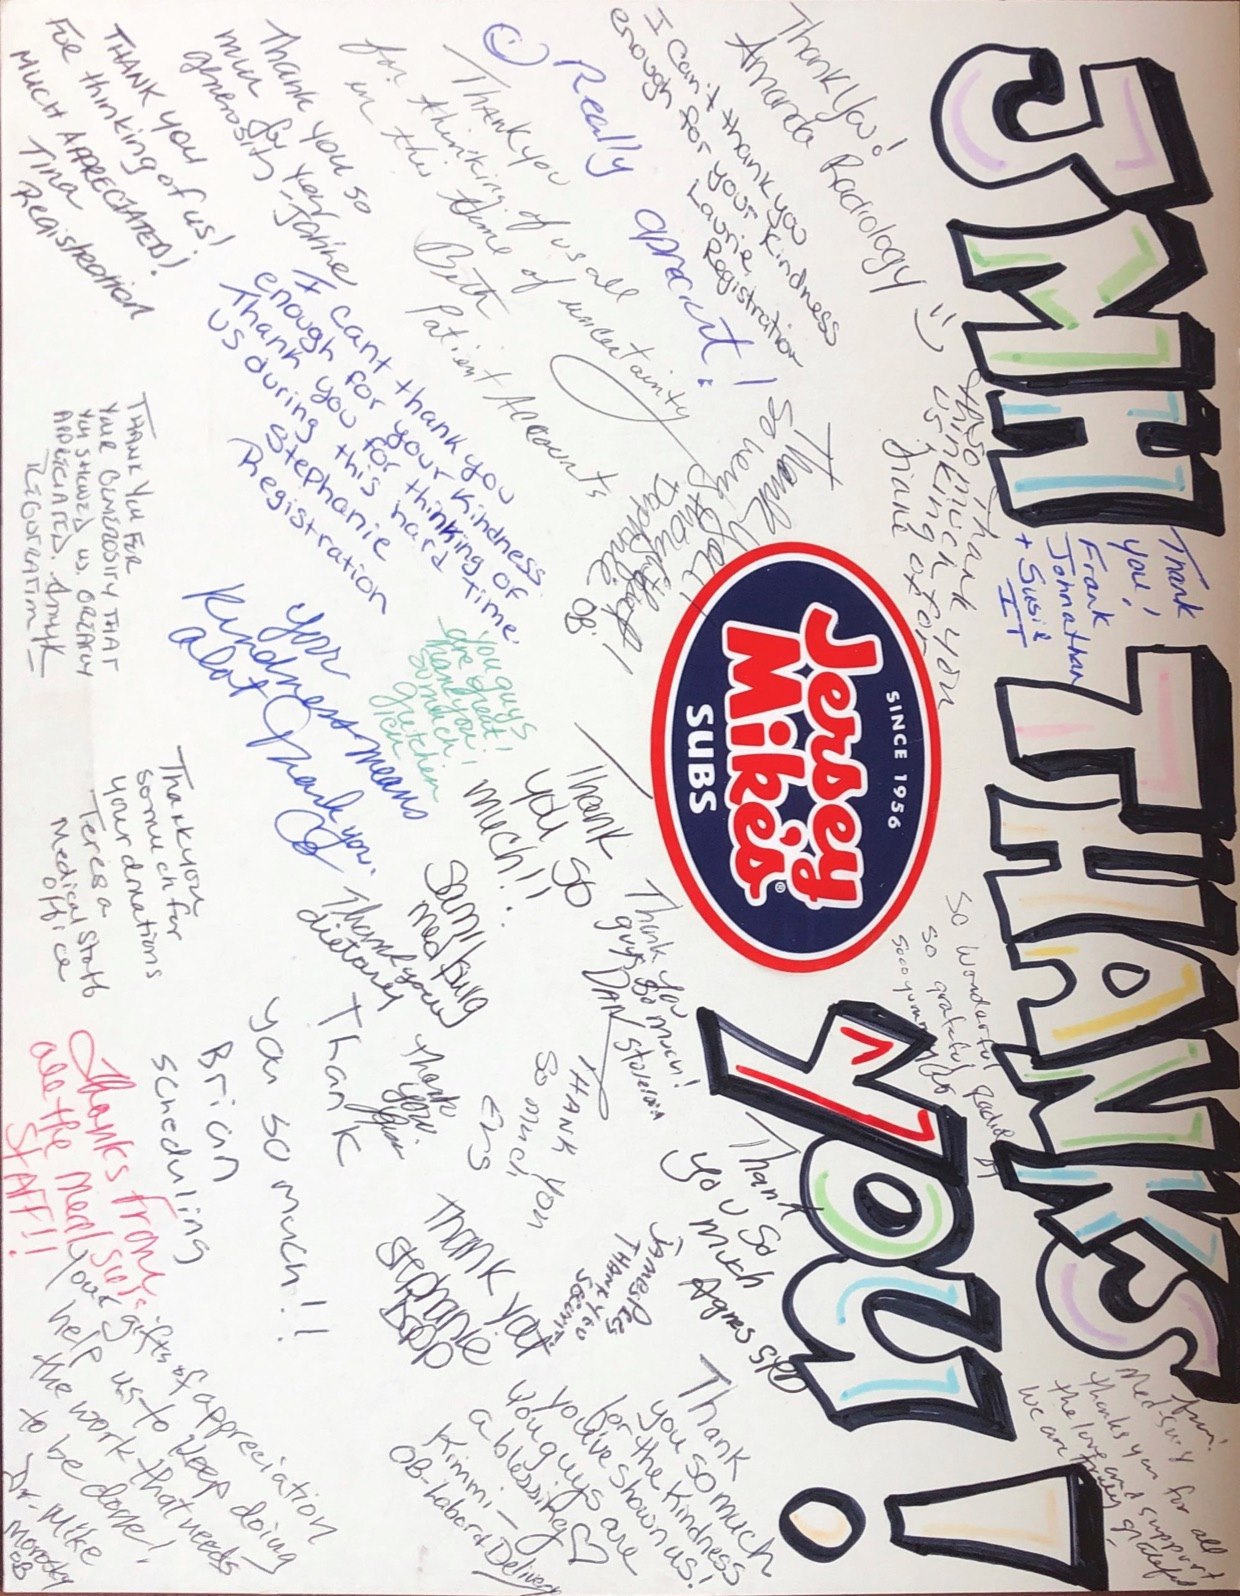 JMH THANKS
YOU!
SINCE 1956
Jersey
Mike's
SUBS
®
Thank
you!
Frank
Johnathan
+ Susie
IT
Thank You!
Amanda Radiology
I can't thank you
enough for your kindness
Laurie
Registration
Really
apreciat!
Thank you
for thinking of us all
in this time of uncertainty
Beth
Patient Accounts
Thank you so
much for your
generosity - Janine
THANK YOU
For thinking of us!
MUCH APPRECIATED!
Tina
Registration
Also thank you
so much for
thinking of
us
Diane
Thank you
So very much
Daphne OB
I cant thank you
enough for your kindness.
Thank you for thinking of
us during this hard time.
Stephanie
Registration
THANK YOU FOR
YOUR GENEROSITY THAT
YOU SHOWED US. GREATLY
APPRECIATED. Amy K
REGISTRATION
You guys
are great!
Thank you
so much!
Gretchen
ICU
Your
Kindness means
alot Thank you.
OB
Thank
you so
much!!
Sam Hwg
med surg
Thank you
so much for
your donations
Teresa
Medical Staff
Office
Thank you
guys so much!
DAN
So wonderful
So grateful
Sooo yummy
Radiology
Thank you
dietary
Thank
you so much!!
Brian
Scheduling
Thank
you.
THANK YOU
So much
EVS
Thank
you so
much
Agnes SPD
James Pes
THANK YOU
SECURITY
Thank you
Stephanie
DSPD
Thanks from
all the Med Surg
STAFF!!
Your gifts of appreciation
help us to keep doing
the work that needs
to be done!
Dr. Mike
Morosky
OB
Thank
you so much
for the kindness
you've shown us!
You guys are
a blessing ♡
Kimmi -
OB-Labor & Delivery
Med Surg
thanks you for all
the love and support
We are truly grateful